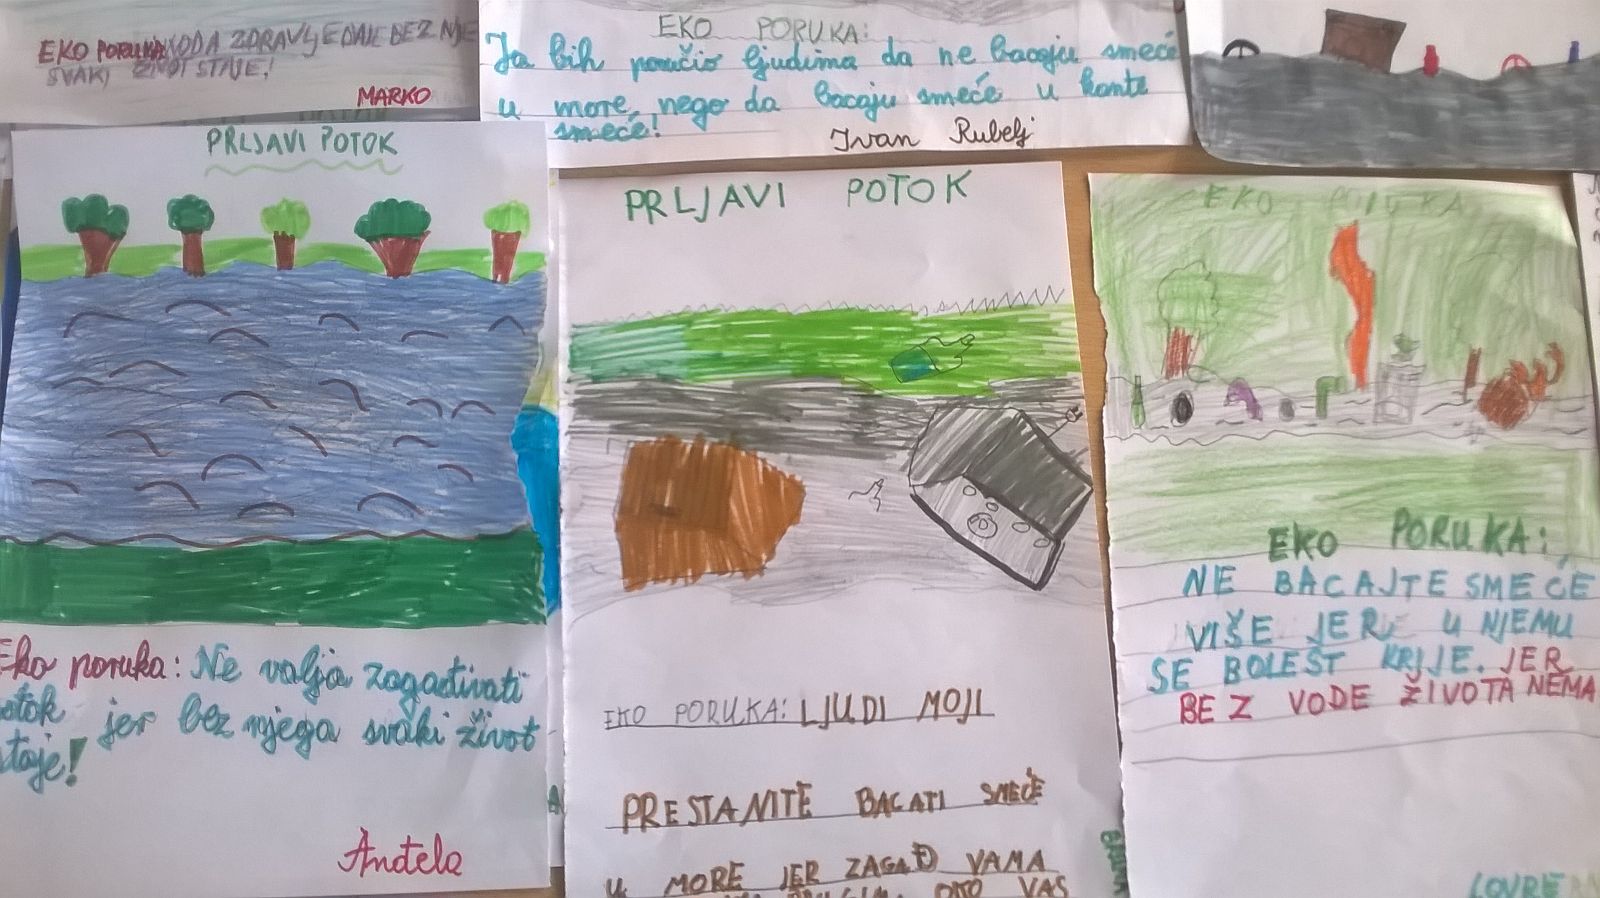 EKO PORUKA: VODA ZDRAVLJE DAJE BEZ NJE
SVAKI ŽIVOT STAJE!
MARKO
EKO PORUKA:
Ja bih poručio ljudima da ne bacaju smeće
u more nego da bacaju smeće u kante
smeće!
Ivan Rubelj
PRLJAVI POTOK
Eko poruka: Ne valja zagađivati
potok jer bez njega svaki život
staje!
Anđela
PRLJAVI POTOK
EKO PORUKA: LJUDI MOJI
PRESTANITE BACATI SMEĆE
U MORE JER ZAGAĐ VAMA
OKO VAS
EKO PORUKA
EKO PORUKA:
NE BACAJTE SMEĆE
VIŠE JER U NJEMU
SE BOLEST KRIJE. JER
BEZ VODE ŽIVOTA NEMA
LOVRE